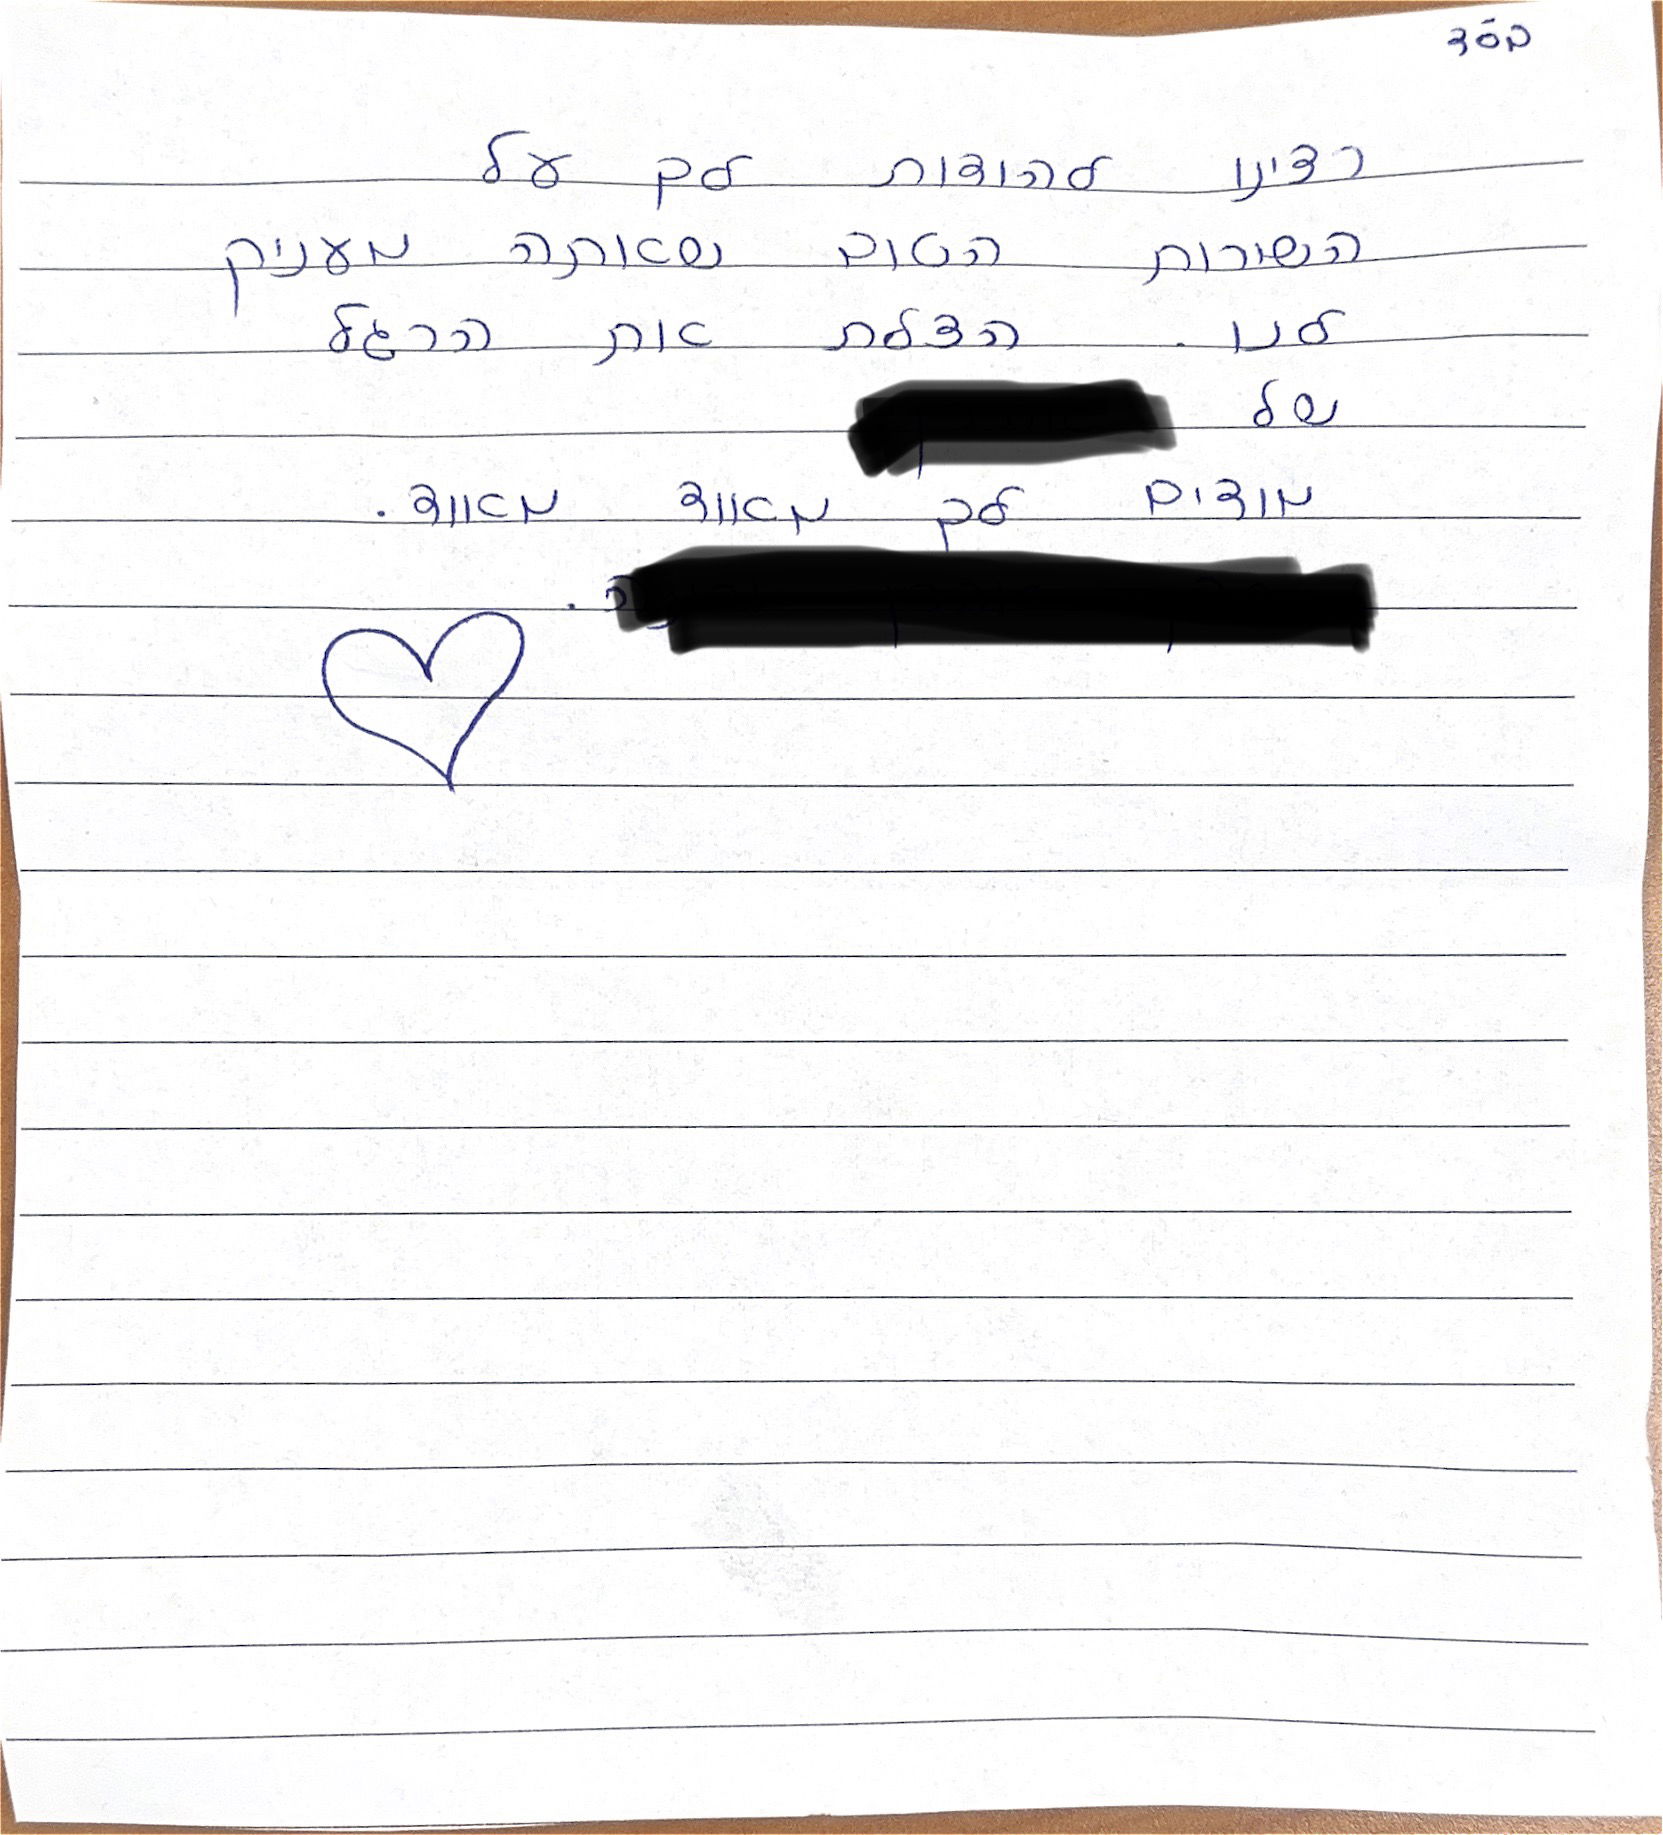 בס"ד
רצינו להודות לך על
השירות הטוב שאתה מעניק
לנו. הצלת את הרגל
של
מודים לך מאווד מאווד.